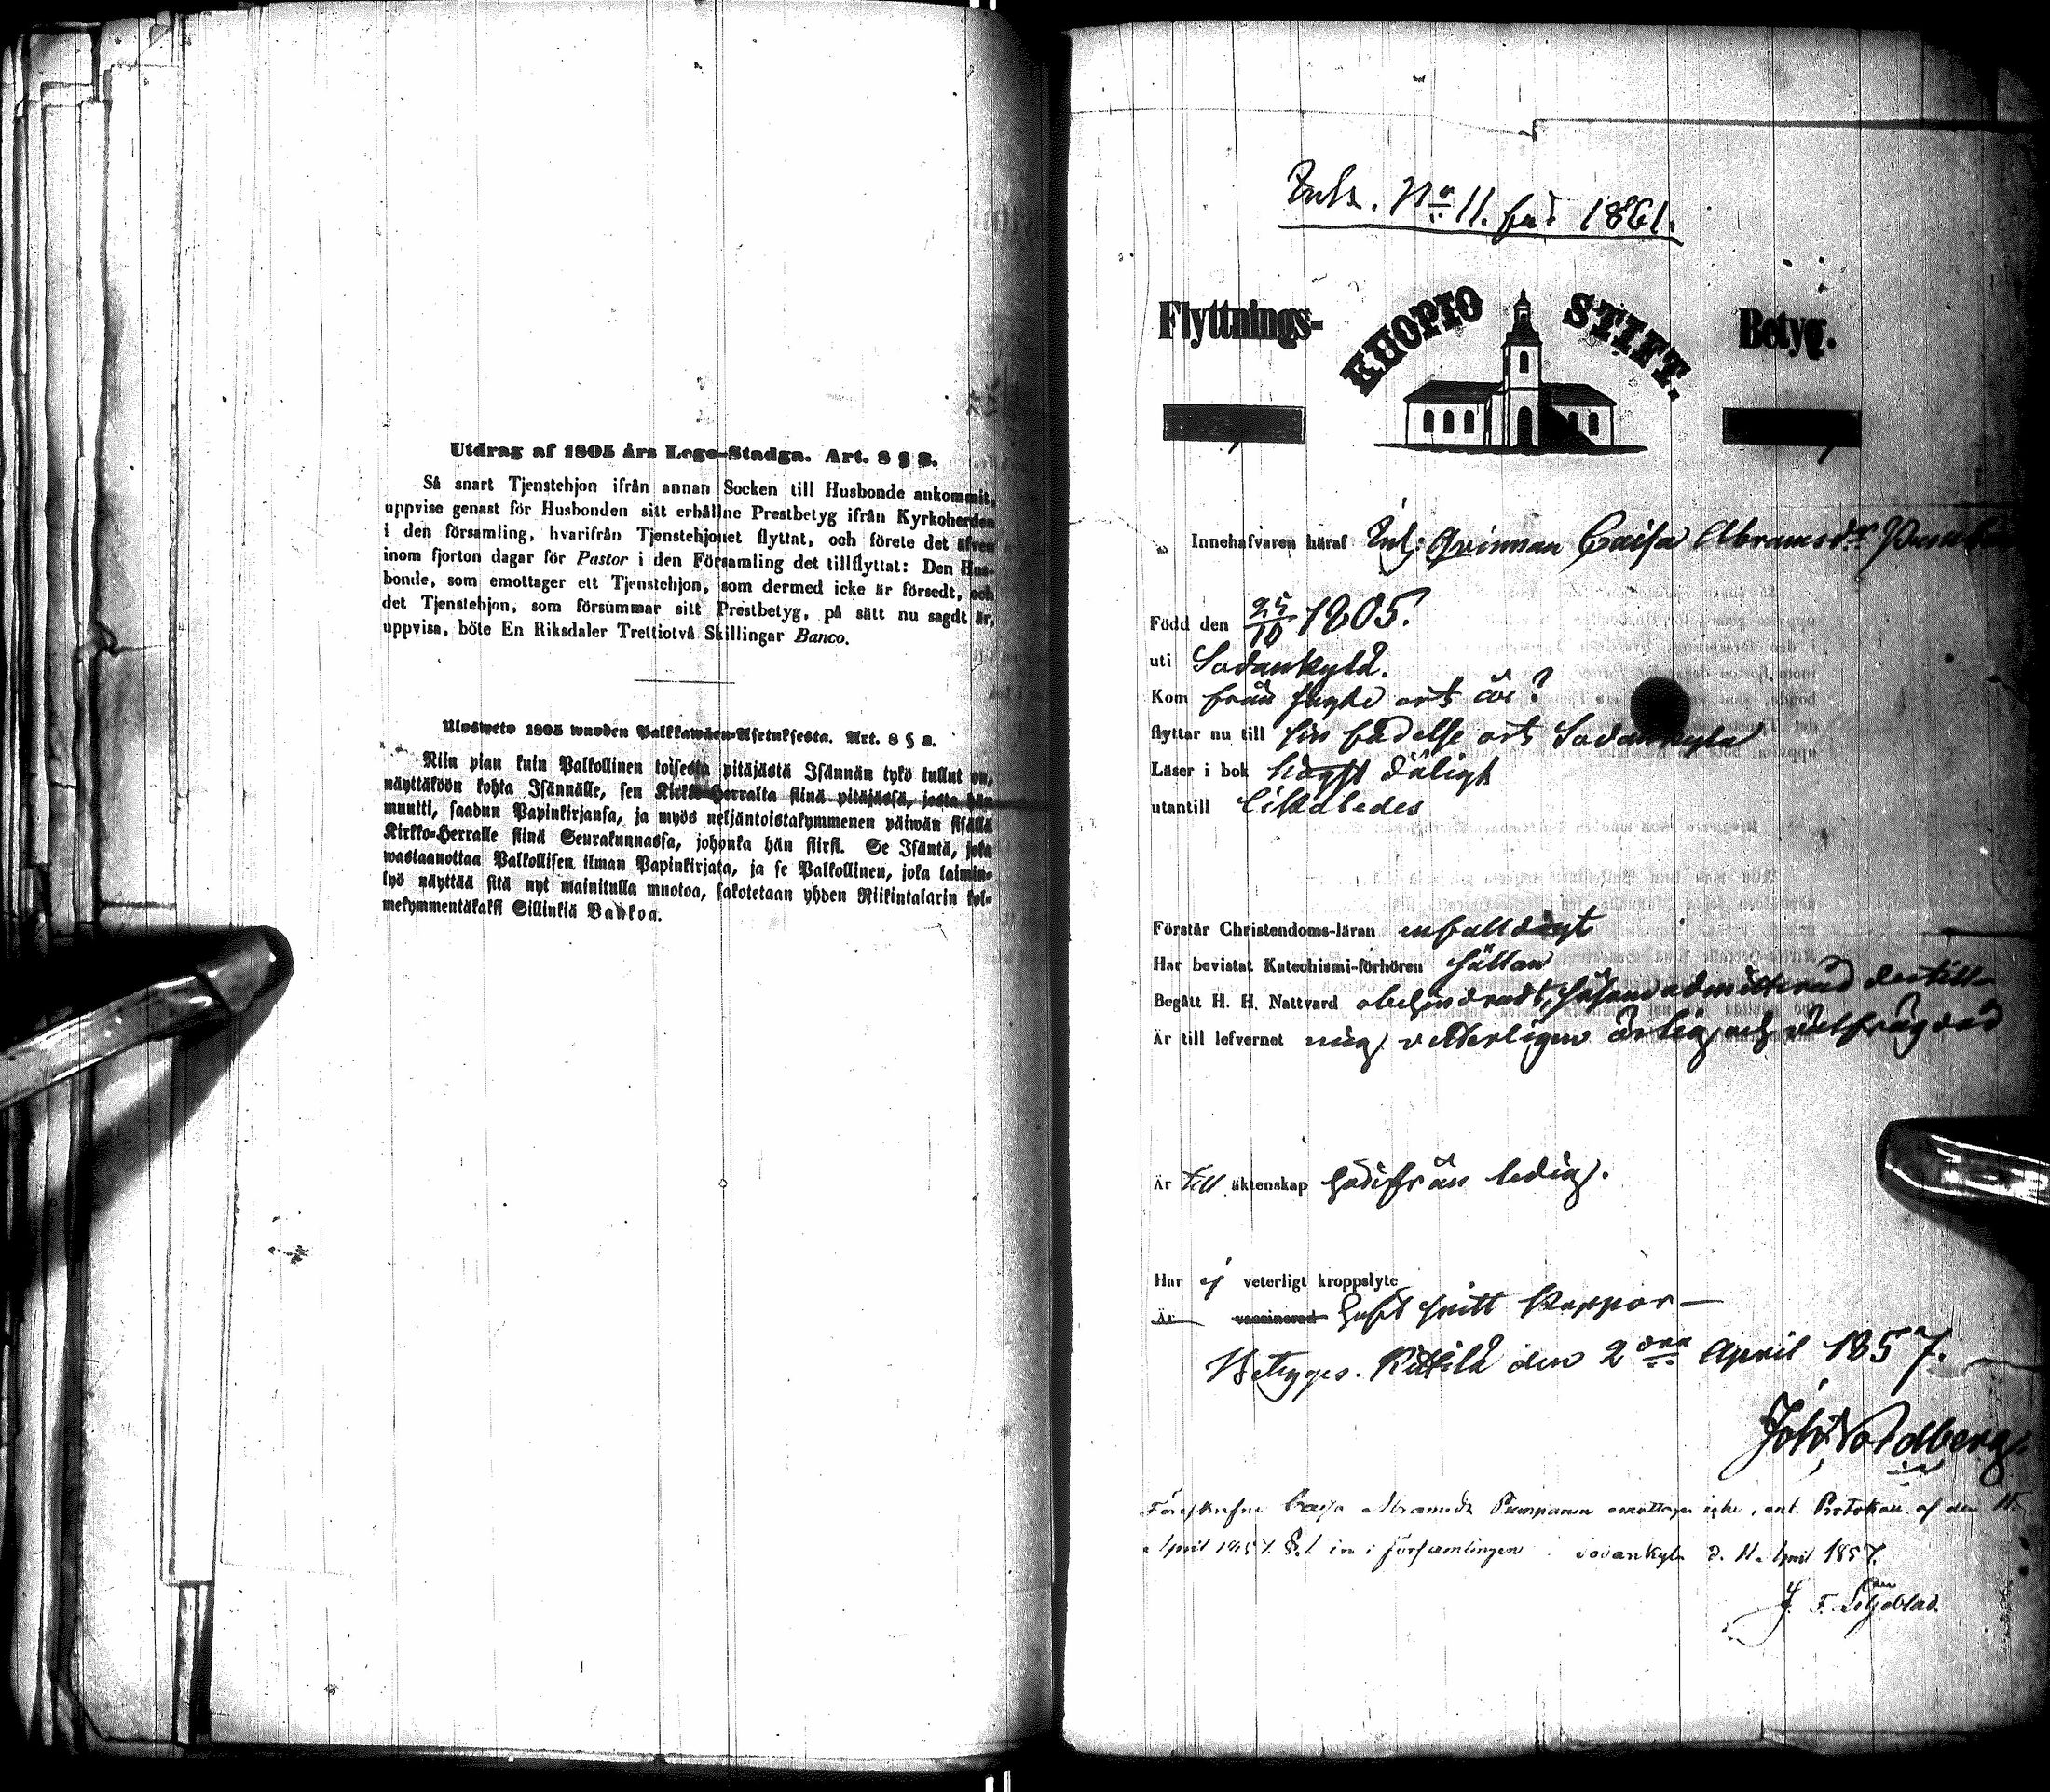 Utdrag af 1805 års Lego-Stadga. Art. 8 § 8.
Så snart Tjenstehjon ifrån annan Socken till Husbonde ankommit,
uppvise genast för Husbonden sitt erhållne Prestbetyg ifrån Kyrkoherden
i den församling, hvarifrån Tjenstehjonet flyttat, och förete det äfven
inom fjorton dagar för Pastor i den Församling det tillflyttat: Den Hus-
bonde, som emottager ett Tjenstehjon, som dermed icke är försedt, och
det Tjenstehjon, som försummar sitt Prestbetyg, på sätt nu sagdt är,
uppvisa, böte En Riksdaler Trettiotvå Skillingar Banco.
Ulosweto 1805 wuoden Palkkawäen-Asetuksesta. Art. 8 § 8.
Niin pian kuin Palkollinen toisesta pitäjästä Isännän tykö tullut on,
näyttäköön kohta Isännälle, sen Kirkko-Herralta siinä pitäjässä, josta hän
muutti, saadun Papinkirjansa, ja myös neljäntoistakymmenen päiwän sisällä
Kirkko-Herralle siinä Seurakunnassa, johonka hän siirsi. Se Isäntä, joka
wastaanottaa Palkollisen ilman Papinkirjata, ja se Palkollinen, joka laimin-
lyö näyttää sitä nyt mainitulla muotoa, sakotetaan yhden Riikintalarin kol-
mekymmentäkaksi Sillinkiä Bankoa.
No 11. 1861.
Flyttnings- KUOPIO STIFT. Betyg.
Innehafvaren häraf Inh. Qvinnan Caisa Abramsdr
Född den 25/10 1805.
uti Sodankylä.
Kom från sagde ort år ?
flyttar nu till sin födelse ort Sodankylä
Läser i bok högst dåligt
utantill likaledes
Förstår Christendoms-läran enfalldigt
Har bevistat Katechismi-förhören sällan
Begått H. H. Nattvard obehindradt, såsom admitterad dertill
Är till lefvernet mig veterligen ärlig och välfrägdad
Är till äktenskap härifrån ledig.
Har ej veterligt kroppslyte
Är vaccinerad haft sjelf koppor—
Betygas. Kittilä den 2dra April 1857.
Joh. Nordberg
Föreskrifne Caisa Abramsdr Pumpanen emottages icke, enl. Protokoll af den
April 1857 § 1 in i församlingen. Sodankylä d. April 1857.
J. F. Liljeblad.